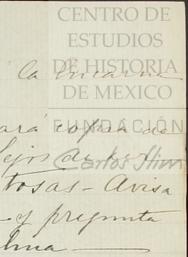 CENTRO DE
ESTUDIOS
DE HISTORIA
la
DE MEXICO
FUNDACIÓN
ará copia de
lejos de
Carlos Slim
tosas - Avisa
- y pregunta